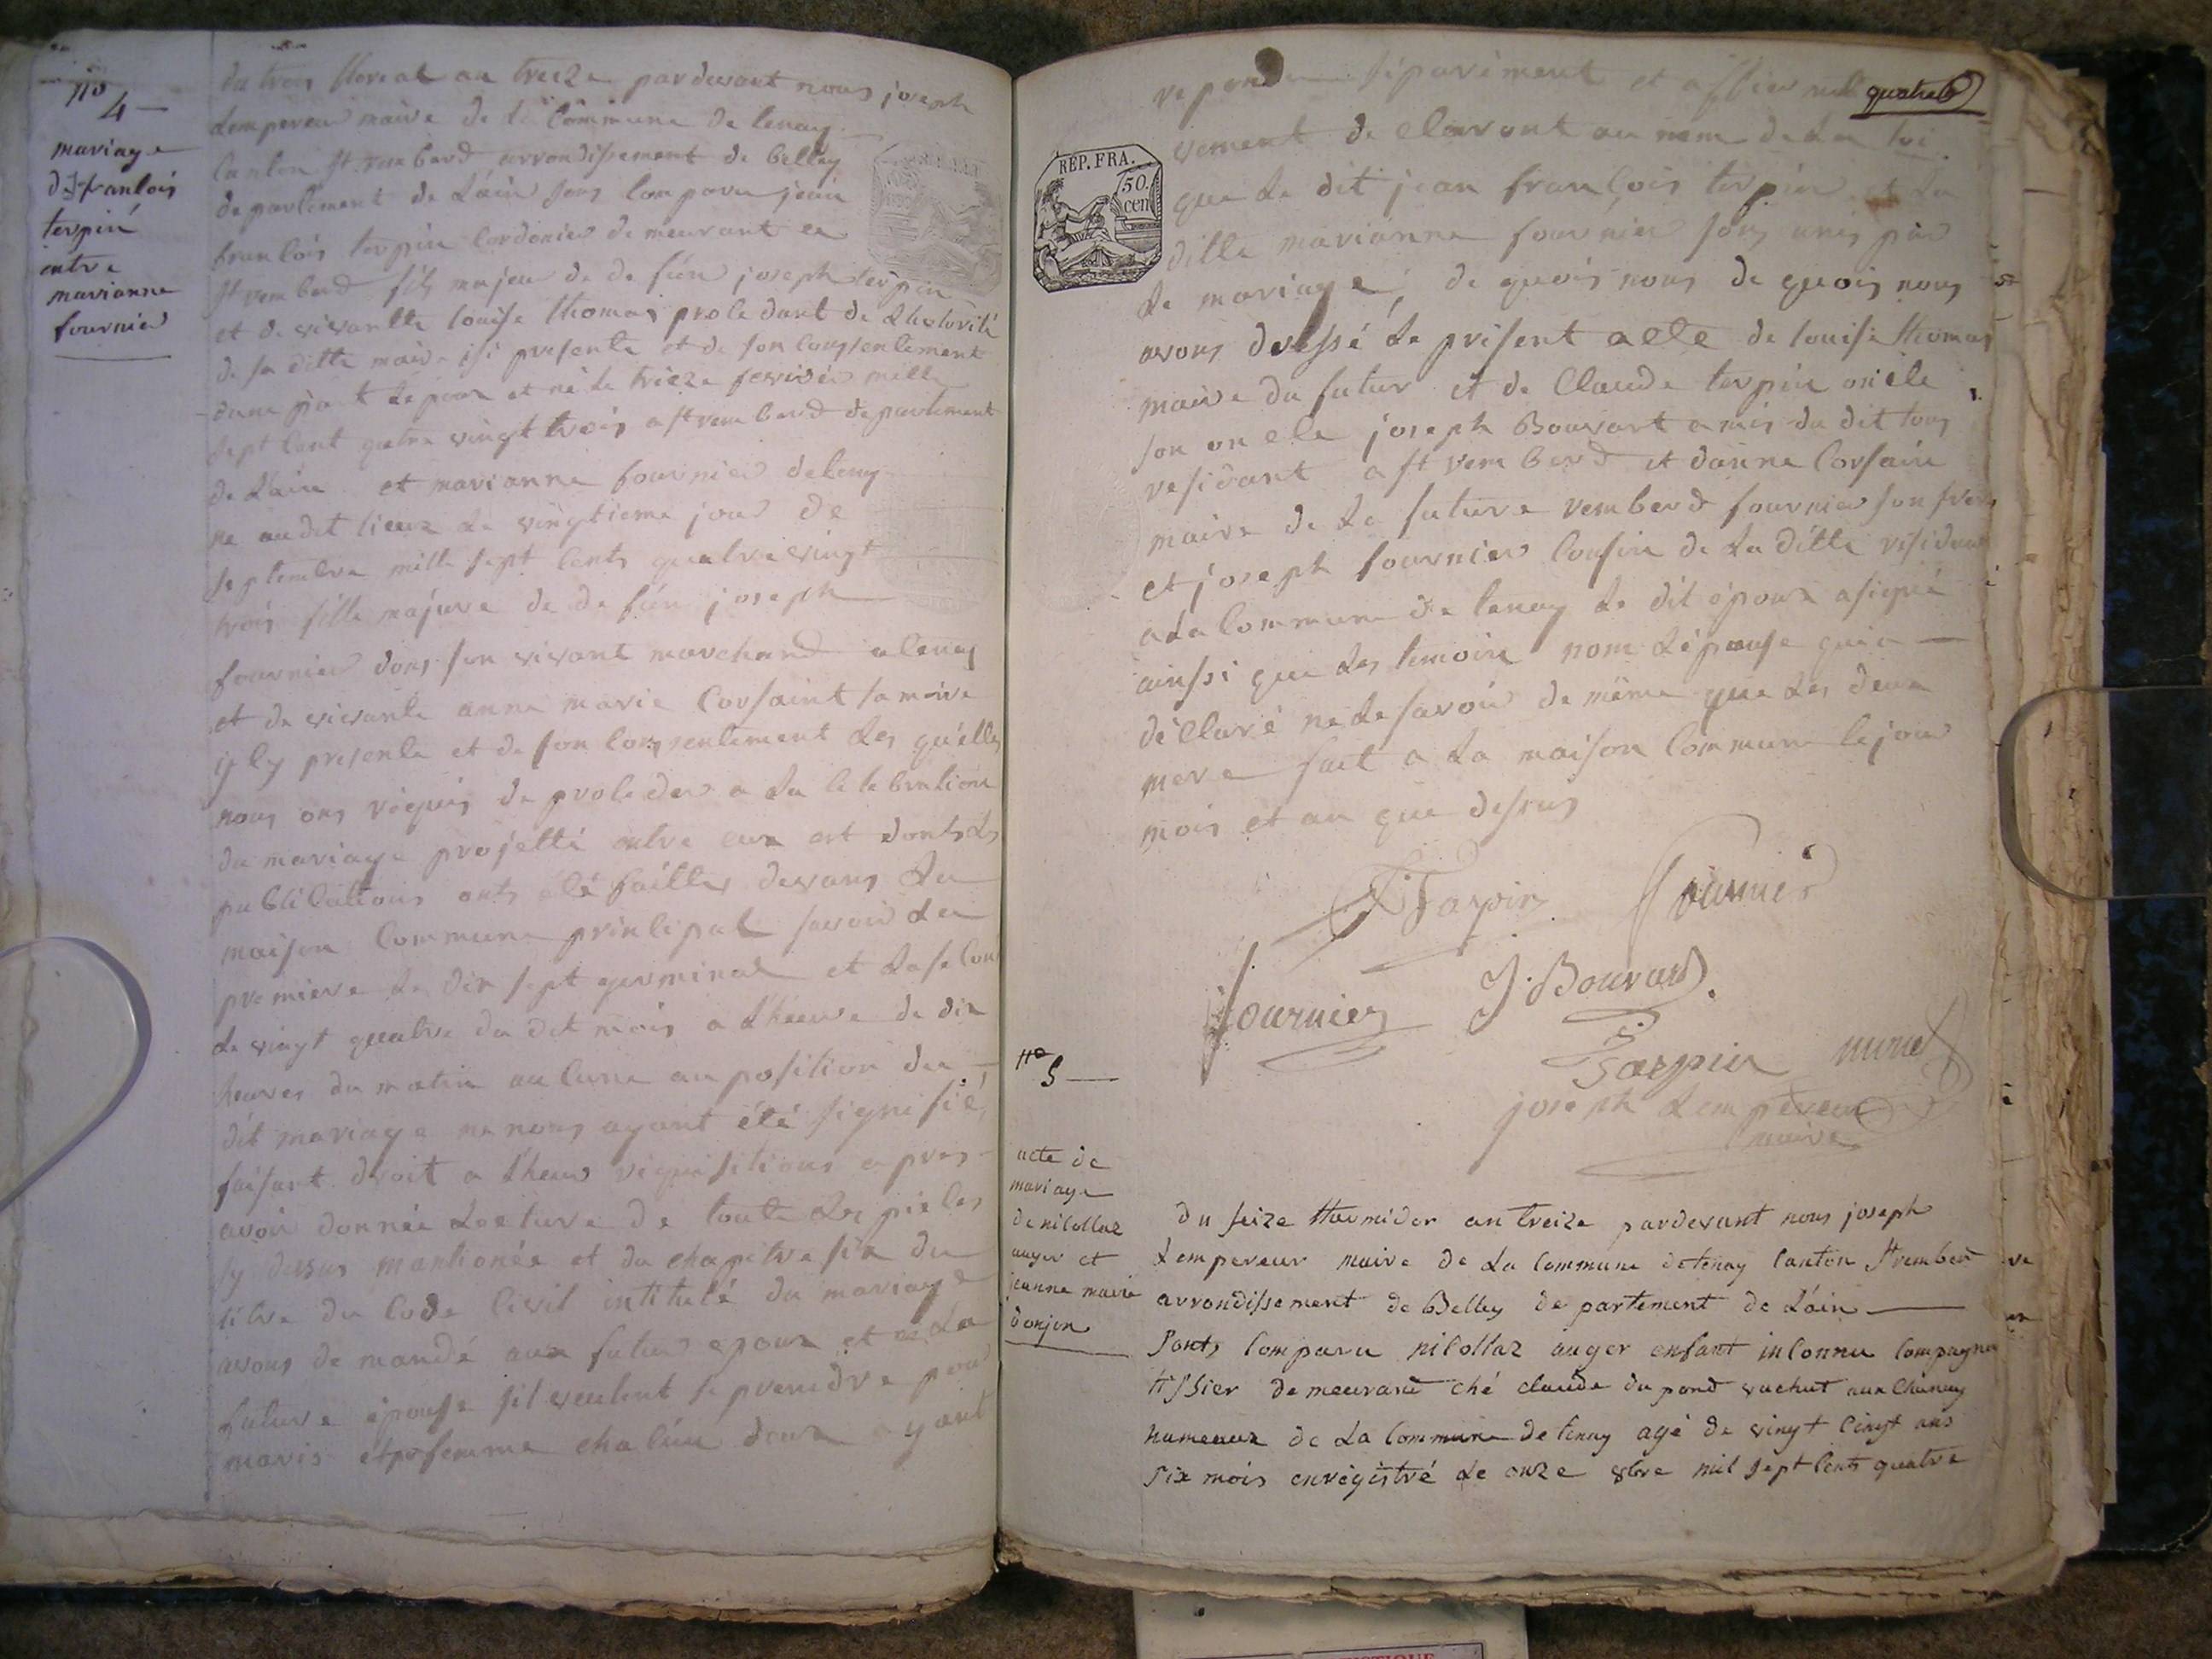 no
4
mariage
de j francois
terpin
entre
marianne
fournier
du trois floreal an treize pardevant nous joseph
Lempereur maire de la Commune de tenay
Canton st rembert arrondissement de belley
de partement de Lain sons comparu jean
francois terpin Cordonier demeurant a
st rembert fils majeur de de fun joseph terpin
et de vivantte louise thomas procedant de Lhotorité
de sa ditte maire isi presente et de son consentement
dune part Lepoux et né le treize fevrier mille
sept cent quatre vingt trois a st rembert departement
de Lain et marianne fournier detenay
ne au dit lieux Le vingtieme jour de
septembre mille sept cents quatre vingt
trois fille majeure de de fun joseph
fournier dons son vivant marchand a tenay
et de vivante anne marie Corsaint sa maire
isly presente et de son consentement Les quelles
nous ons requis de proceder a La celebration
du mariage projetté entre eux est donts Les
publications onts été faittes devans La
maison Commune principal savoir La
premiere Le dix sept germinal et La secon
Le vingt quatre du dit mois a Lheure de dix
heures du matin aucune auposition du
dit mariage ne nous ayant été signifié
faisant droit a Lheur requisitions apres
avoir donnée Lecture de toute Les pieces
sy dessus mantionée et du chapitre six du
titre du Code Civil intitulé du mariage
avons demandé aux futur epoux et a La
future épouse sil veulent se prendre pour
maris et pr femme chacun deux ayant
quatre
repondu séparément et affirmati
vement declaront au nom de La loi
que Le dit jean françois terpin et La
ditte marianne fournier sons unis par
Le mariage, de quois nous de quois nous
avons dressé Le present acte de louise thomas
maire du futur et de Claude terpin oncle
son oncle joseph Bouvart amis du dit tous
residant a st rembert et danne Corsain
maire de La future rembert fournier son frere
et joseph fournier Cousin de La ditte residant
a La Commune de tenay Le dit époux a signé
ainssi que Les temoins nom Lépouse qui a
déclaré ne Le savoir de même que Les deux
mere fait a La maison Commune le jour
mois et an que dessus
REP. FRA.
50.
cen
F Tarpin fournier
fournier J. Bouvard
Tarpin
joseph Lempereur
maire
no
5
acte de
mariage
de nicollaz
auger et
jeanne marie
donjon
du seize thermidor an treize pardevant nous joseph
Lempereur maire de La Commune detenay Canton st rembert
arrondissement de Belley departement de Lain
sonts Comparu nicollaz auger enfant inconnu Compagnon
tissier demeurant ché claude du pond vachat aux Chanay
hameaux de La Commune de tenay agé de vingt cinqt ans
six mois enregistré Le onze xbre mil sept cents quatre